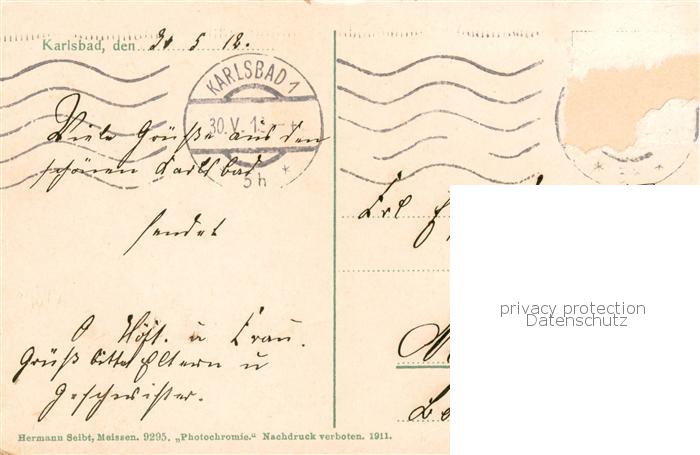 Karlsbad, den 30 5 12.
KARLSBAD 1
30.V.1
5h
Viele Grüße aus den
schönen Karlsbad
sendet
O Höft. u Frau.
Grüß bitte Eltern u
Geschwister.
Hermann Seibt, Meissen. 9295. „Photochromie." Nachdruck verboten. 1911.
Frl
privacy protection
Datenschutz